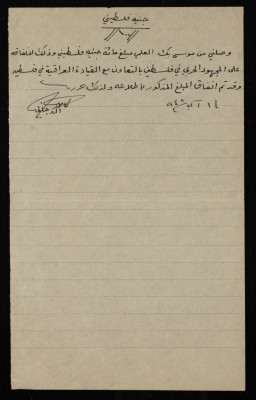 جنيه فلسطيني
//١٠٠//
وصلني من موسى بك العلمي مبلغ مائة جنيه فلسطيني وذلك لانفاقه
على المجهود الحربي في فلسطين بالتعاون مع القيادة العراقية في فلسطين
وقد تم انفاق المبلغ المذكور باطلاعه ولذلك حررت
١٤ آب
كامل الدجاني